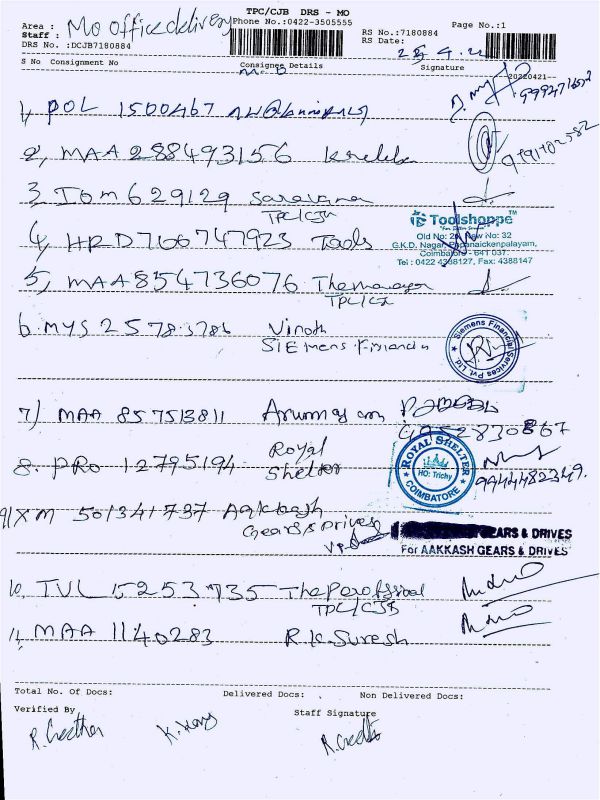 TPC/CJB DRS - MO
Area : Mo office delivery Phone No.:0422-3505555 Page No.:1
Staff : RS No.:7180884
DRS No. :DCJB7180884 RS Date:
S No Consignment No Consignee Details Signature
20220421
1, POL 1500467
2, MAA 288493156
3, IOM 629129 Saravana
TPC/CJB
Toolshoppe™
Old No: New No: 32
G.K.D. Nagar, Papanaickenpalayam,
Coimbatore - 641 037.
Tel : 0422 4388127, Fax: 4388147
4, HRD 7100747923 Tools
5, MAA 854736076 The manager
TPC/CJ
6. MYS 257853786 Vinoth
SIEmens Financial
Siemens Financial Services Pvt. Ltd.
7) MAA 857513811 Arumugam
9952830867
8. PRO 12795194 Royal
Shelter
ROYAL SHELTER
HO: Trichy
COIMBATORE
9944482349.
9) XM 501341737 Aakkash
Gears & Drives
GEARS & DRIVES
For AAKKASH GEARS & DRIVES
10. TVL 15253735 The Professional
TPC/CJB
11, MAA 1140283 R.K. Suresh
Total No. Of Docs: Delivered Docs: Non Delivered Docs:
Verified By Staff Signature